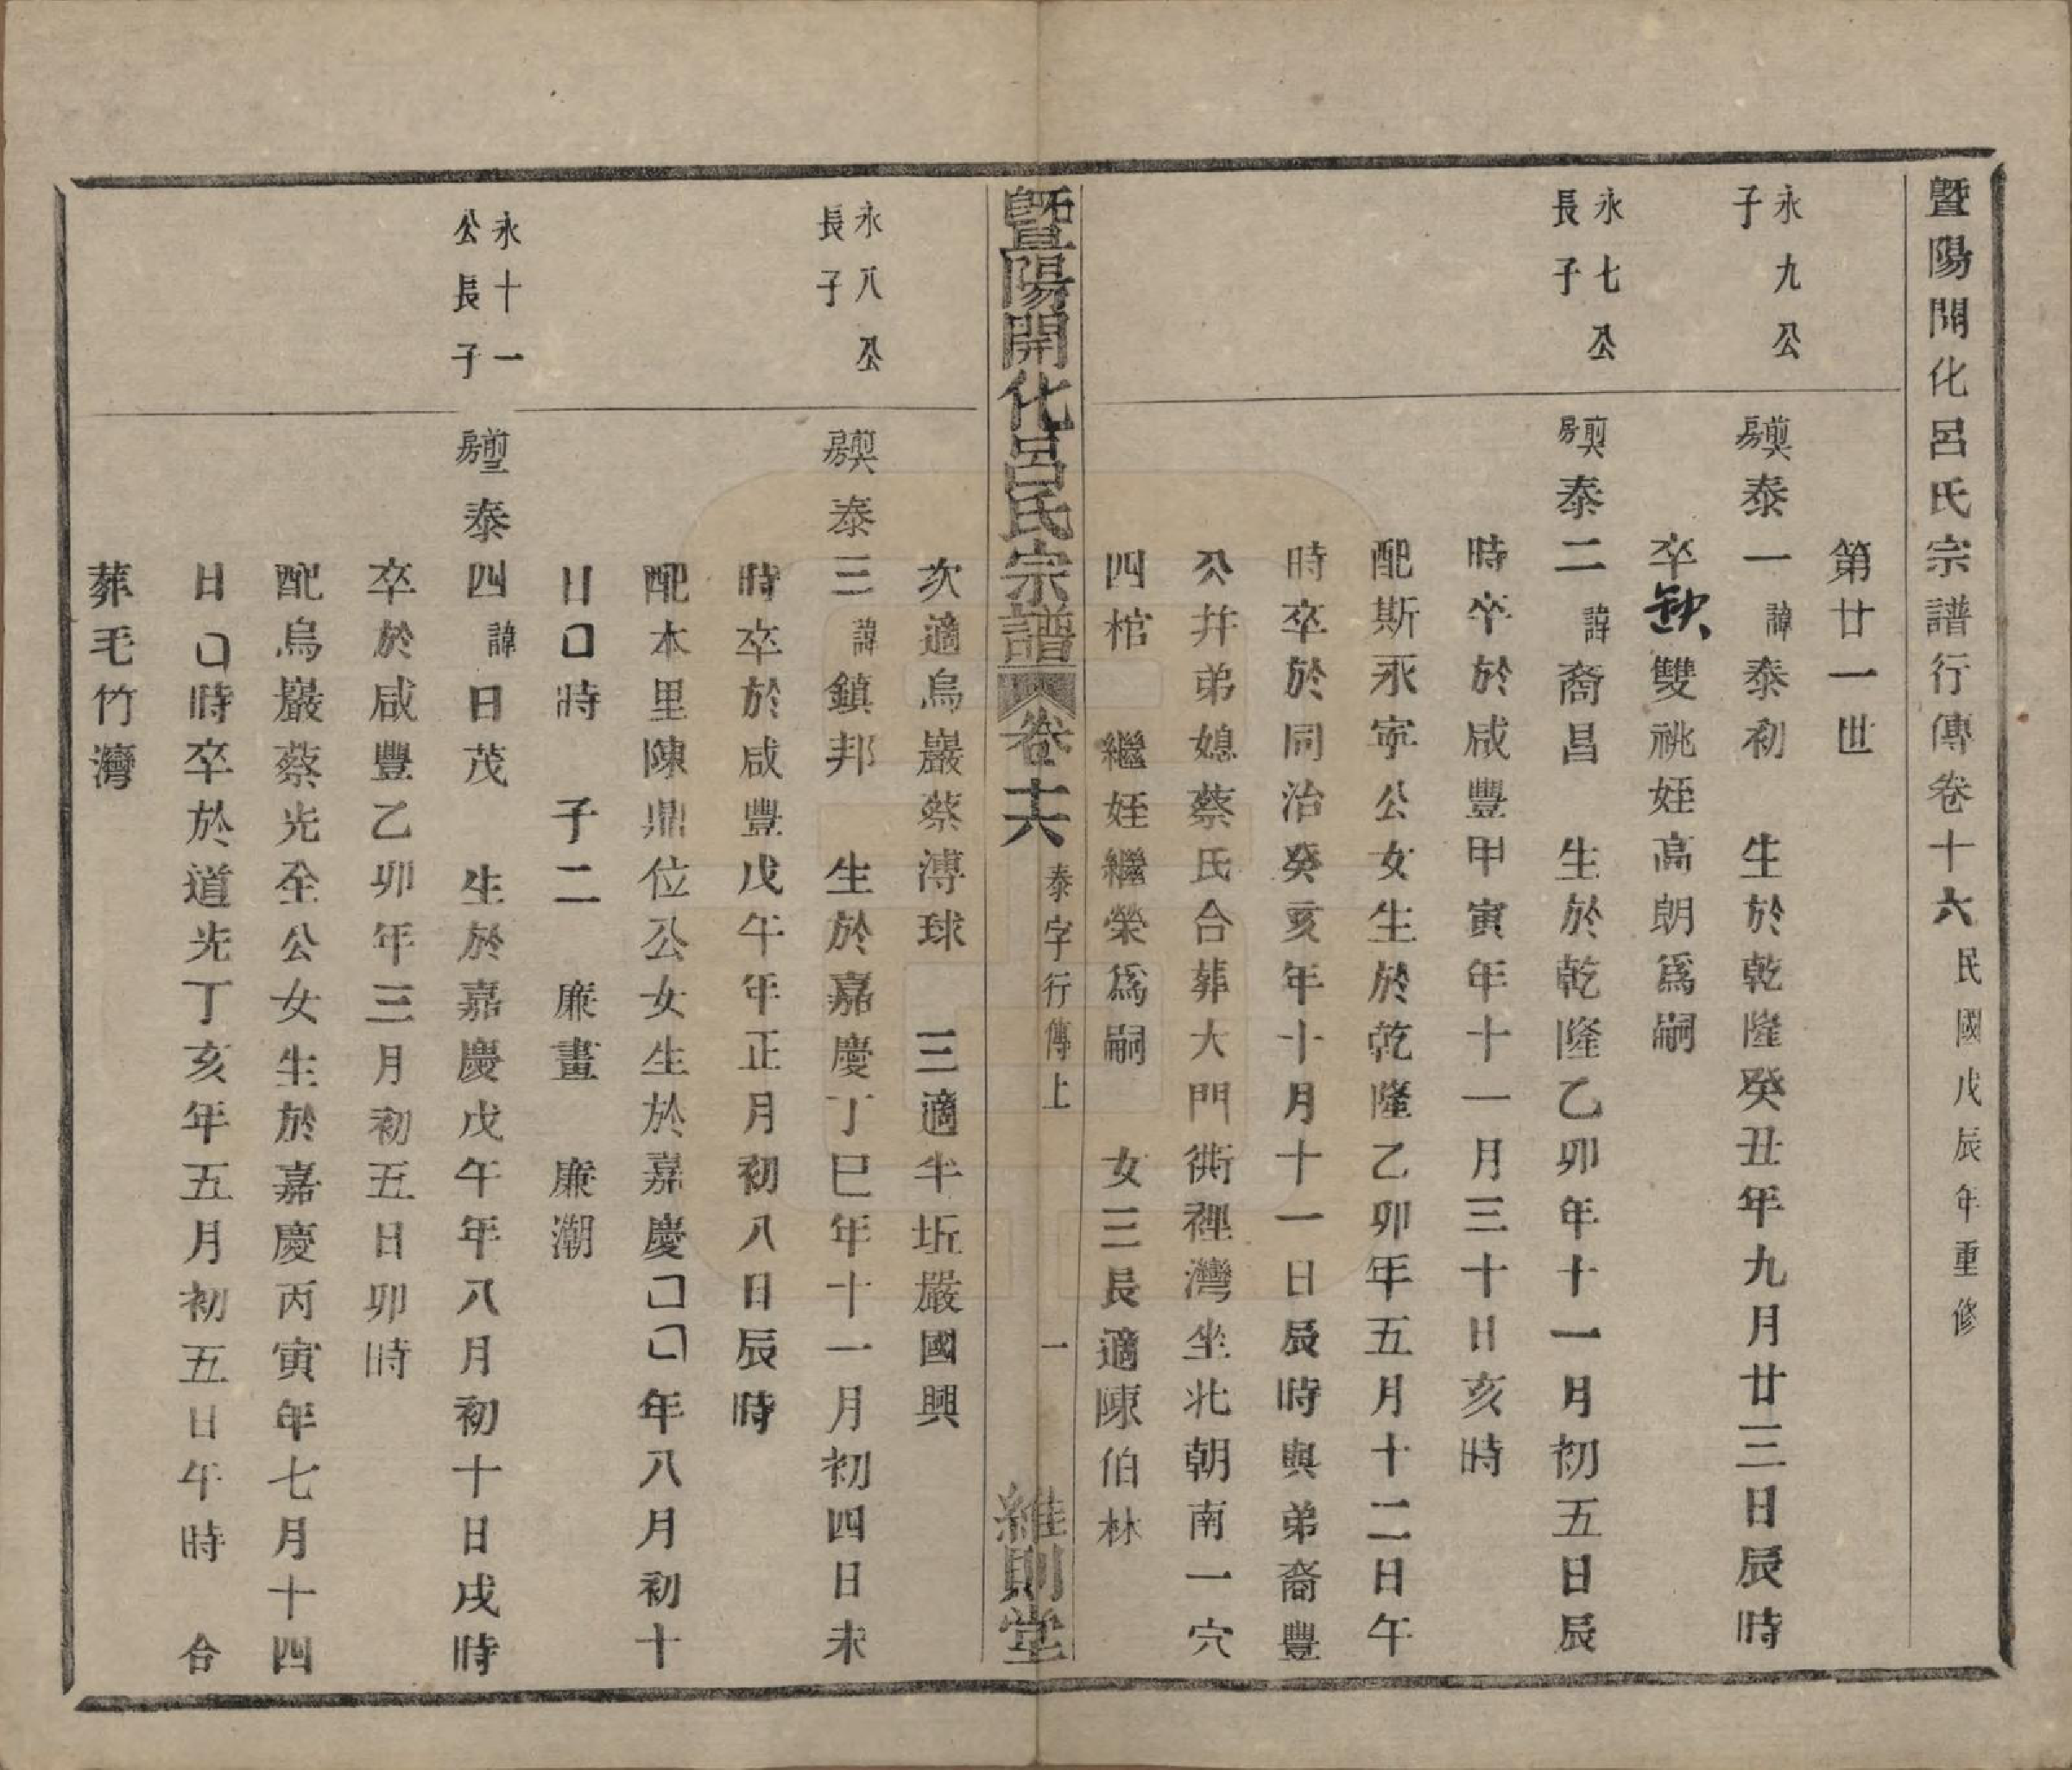 暨陽開化呂氏宗譜行傳卷十六 民國戊辰年重修
第廿一世
永九公子
巽房 泰一 諱泰初 生於乾隆癸丑年九月廿三日辰時
卒缺雙祧姪高朗為嗣
永七公長子
巽房 泰二 諱裔昌 生於乾隆乙卯年十一月初五日辰
時卒於咸豐甲寅年十一月三十日亥時
配斯永寧公女生於乾隆乙卯年五月十二日午
時卒於同治癸亥年十月十一日辰時與弟裔豐
公幷弟媳蔡氏合葬大門衖裡灣坐北朝南一穴
四棺 繼姪繼榮為嗣 女三長適陳伯林
暨陽開化呂氏宗譜 卷十六 泰字行傳上 一 維則堂
次適烏巖蔡溥球 三適半坵嚴國興
永八公長子
巽房 泰三 諱鎮邦 生於嘉慶丁巳年十一月初四日未
時卒於咸豐戊午年正月初八日辰時
配本里陳鼎位公女生於嘉慶□□年八月初十
日□時 子二 廉畫 廉潮
永十一公長子
房 泰四 諱日茂 生於嘉慶戊午年八月初十日戌時
卒於咸豐乙卯年三月初五日卯時
配烏巖蔡光全公女生於嘉慶丙寅年七月十四
日□時卒於道光丁亥年五月初五日午時 合
葬毛竹灣